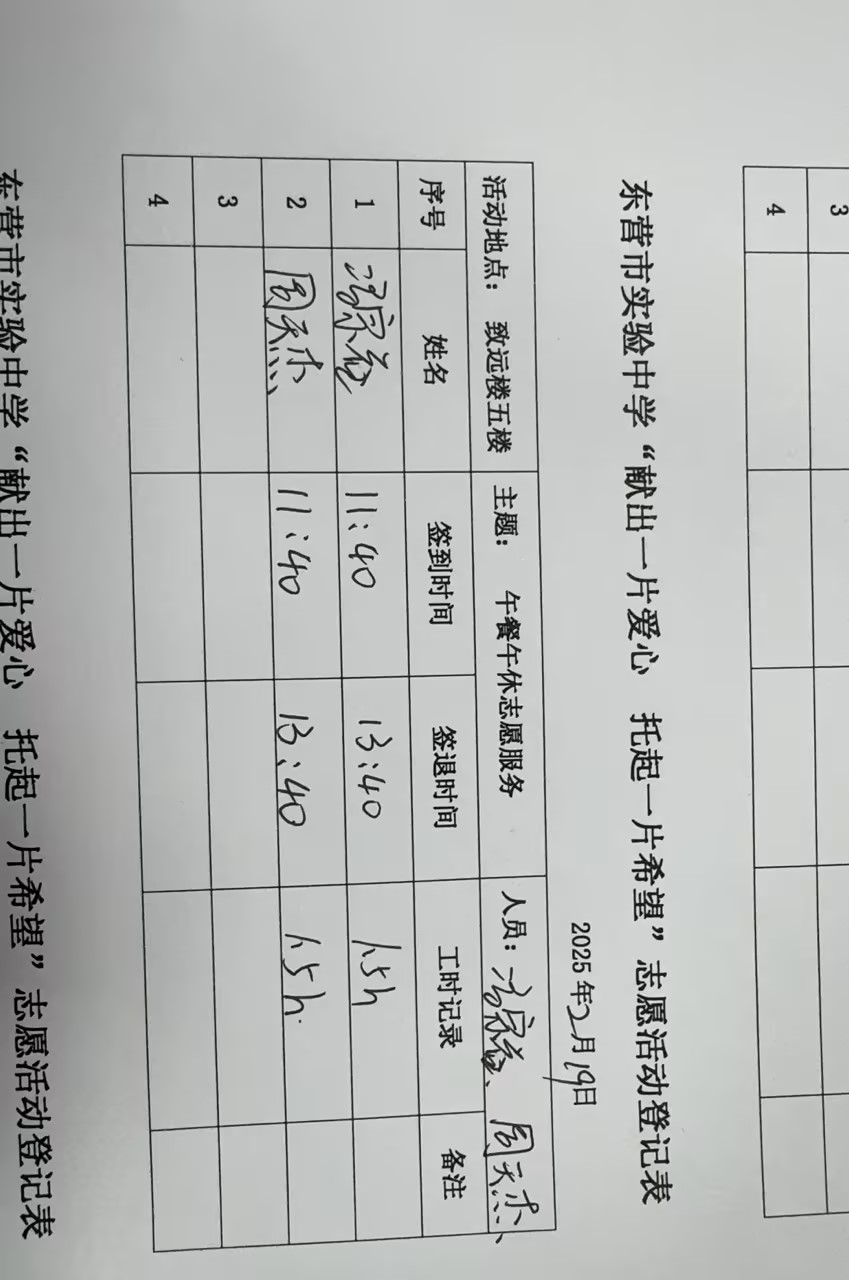 3
4
东营市实验中学“献出一片爱心 托起一片希望”志愿活动登记表
2025年2月19日
活动地点： 致远楼五楼 主题： 午餐午休志愿服务 人员： 、周天杰
序号 姓名 签到时间 签退时间 工时记录 备注
1 11:40 13:40 1.5h
2 周天杰 11:40 13:40 1.5h.
3
4
东营市实验中学“献出一片爱心 托起一片希望”志愿活动登记表